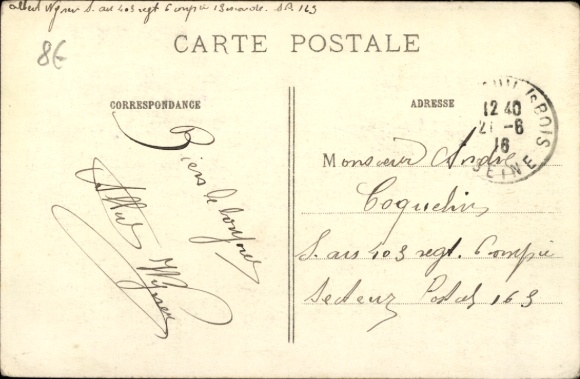 Albert Wyseur S. au 403 regt 6 compie 13 escouade. S.P. 163
8€
CARTE POSTALE
CORRESPONDANCE
Biens le bonjour
Albert Wyseur
ADRESSE
12 40
21 -6
16
BOIS
SEINE
Monsieur André
Coquelin
S. au 403 regt. 6 compie
Secteur Postal 163